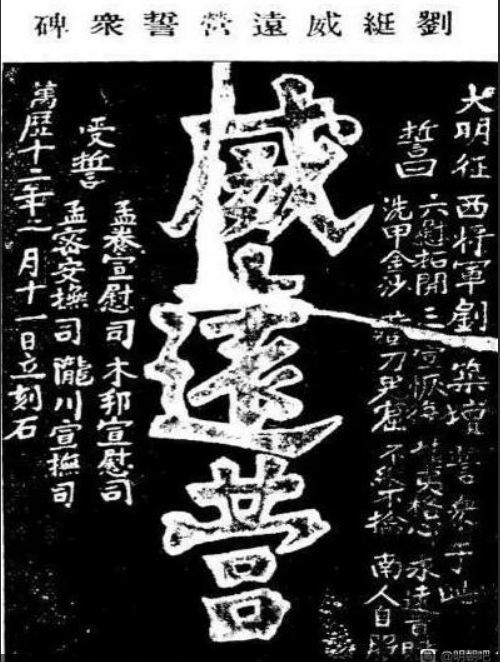 劉綎威遠營誓衆碑
大明征西將軍劉 築壇誓衆于此
誓曰
六慰拓開 三宣恢復 夷格心 永遠貢
洗甲金沙 藏刀鬼窟 不縱不擒 南人自服
威遠營
受誓
孟養宣慰司 木邦宣慰司
孟密安撫司 隴川宣撫司
萬歷十二年二月十一日立刻石
@明朝吧